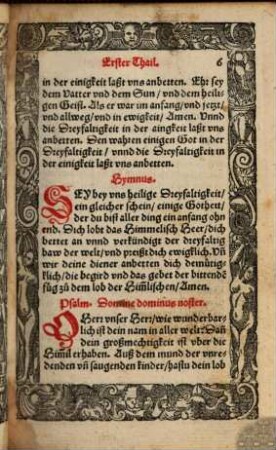 Erster Thail. 6
in der einigkeit laßt vns anbetten. Ehr sey
dem Vatter vnd dem Sun/ vnd dem heili-
gen Geist. Als er war im anfang/ vnd jetzt/
vnd allweg/ vnd in ewigkeit/ Amen. Vnnd
die Dreyfaltigkeit in der aingkeit laßt vns
anbetten. Den wahren einigen Got in der
Dreyfaltigkeit/ vnnd die Dreyfaltigkeit in
der einigkeit laßt vns anbetten.
Hymnus.
SEy bey vns heilige Dreyfaltigkeit/
ein gleicher schein/ einige Gotheit/
der du bist aller ding ein anfang ohn
end. Dich lobt das Himmelisch Heer/ dich
bettet an vnnd verkündigt der dreyfaltig
baw der welt/ vnd preißt dich ewigklich. Vñ
wir deine diener anbetten dich demütig-
klich/ die begird vnd das gebet der bittende
füg zů dem lob der Him̃lischen/ Amen.
Psalm. Domine dominus noster.
O Herr vnser Herr/ wie wunderbar-
lich ist dein nam in aller welt? Dañ
dein großmechtigkeit ist vber die
Him̃l erhaben. Auß dem mund der vnre-
denden vñ saugenden kinder/ hastu dein lob